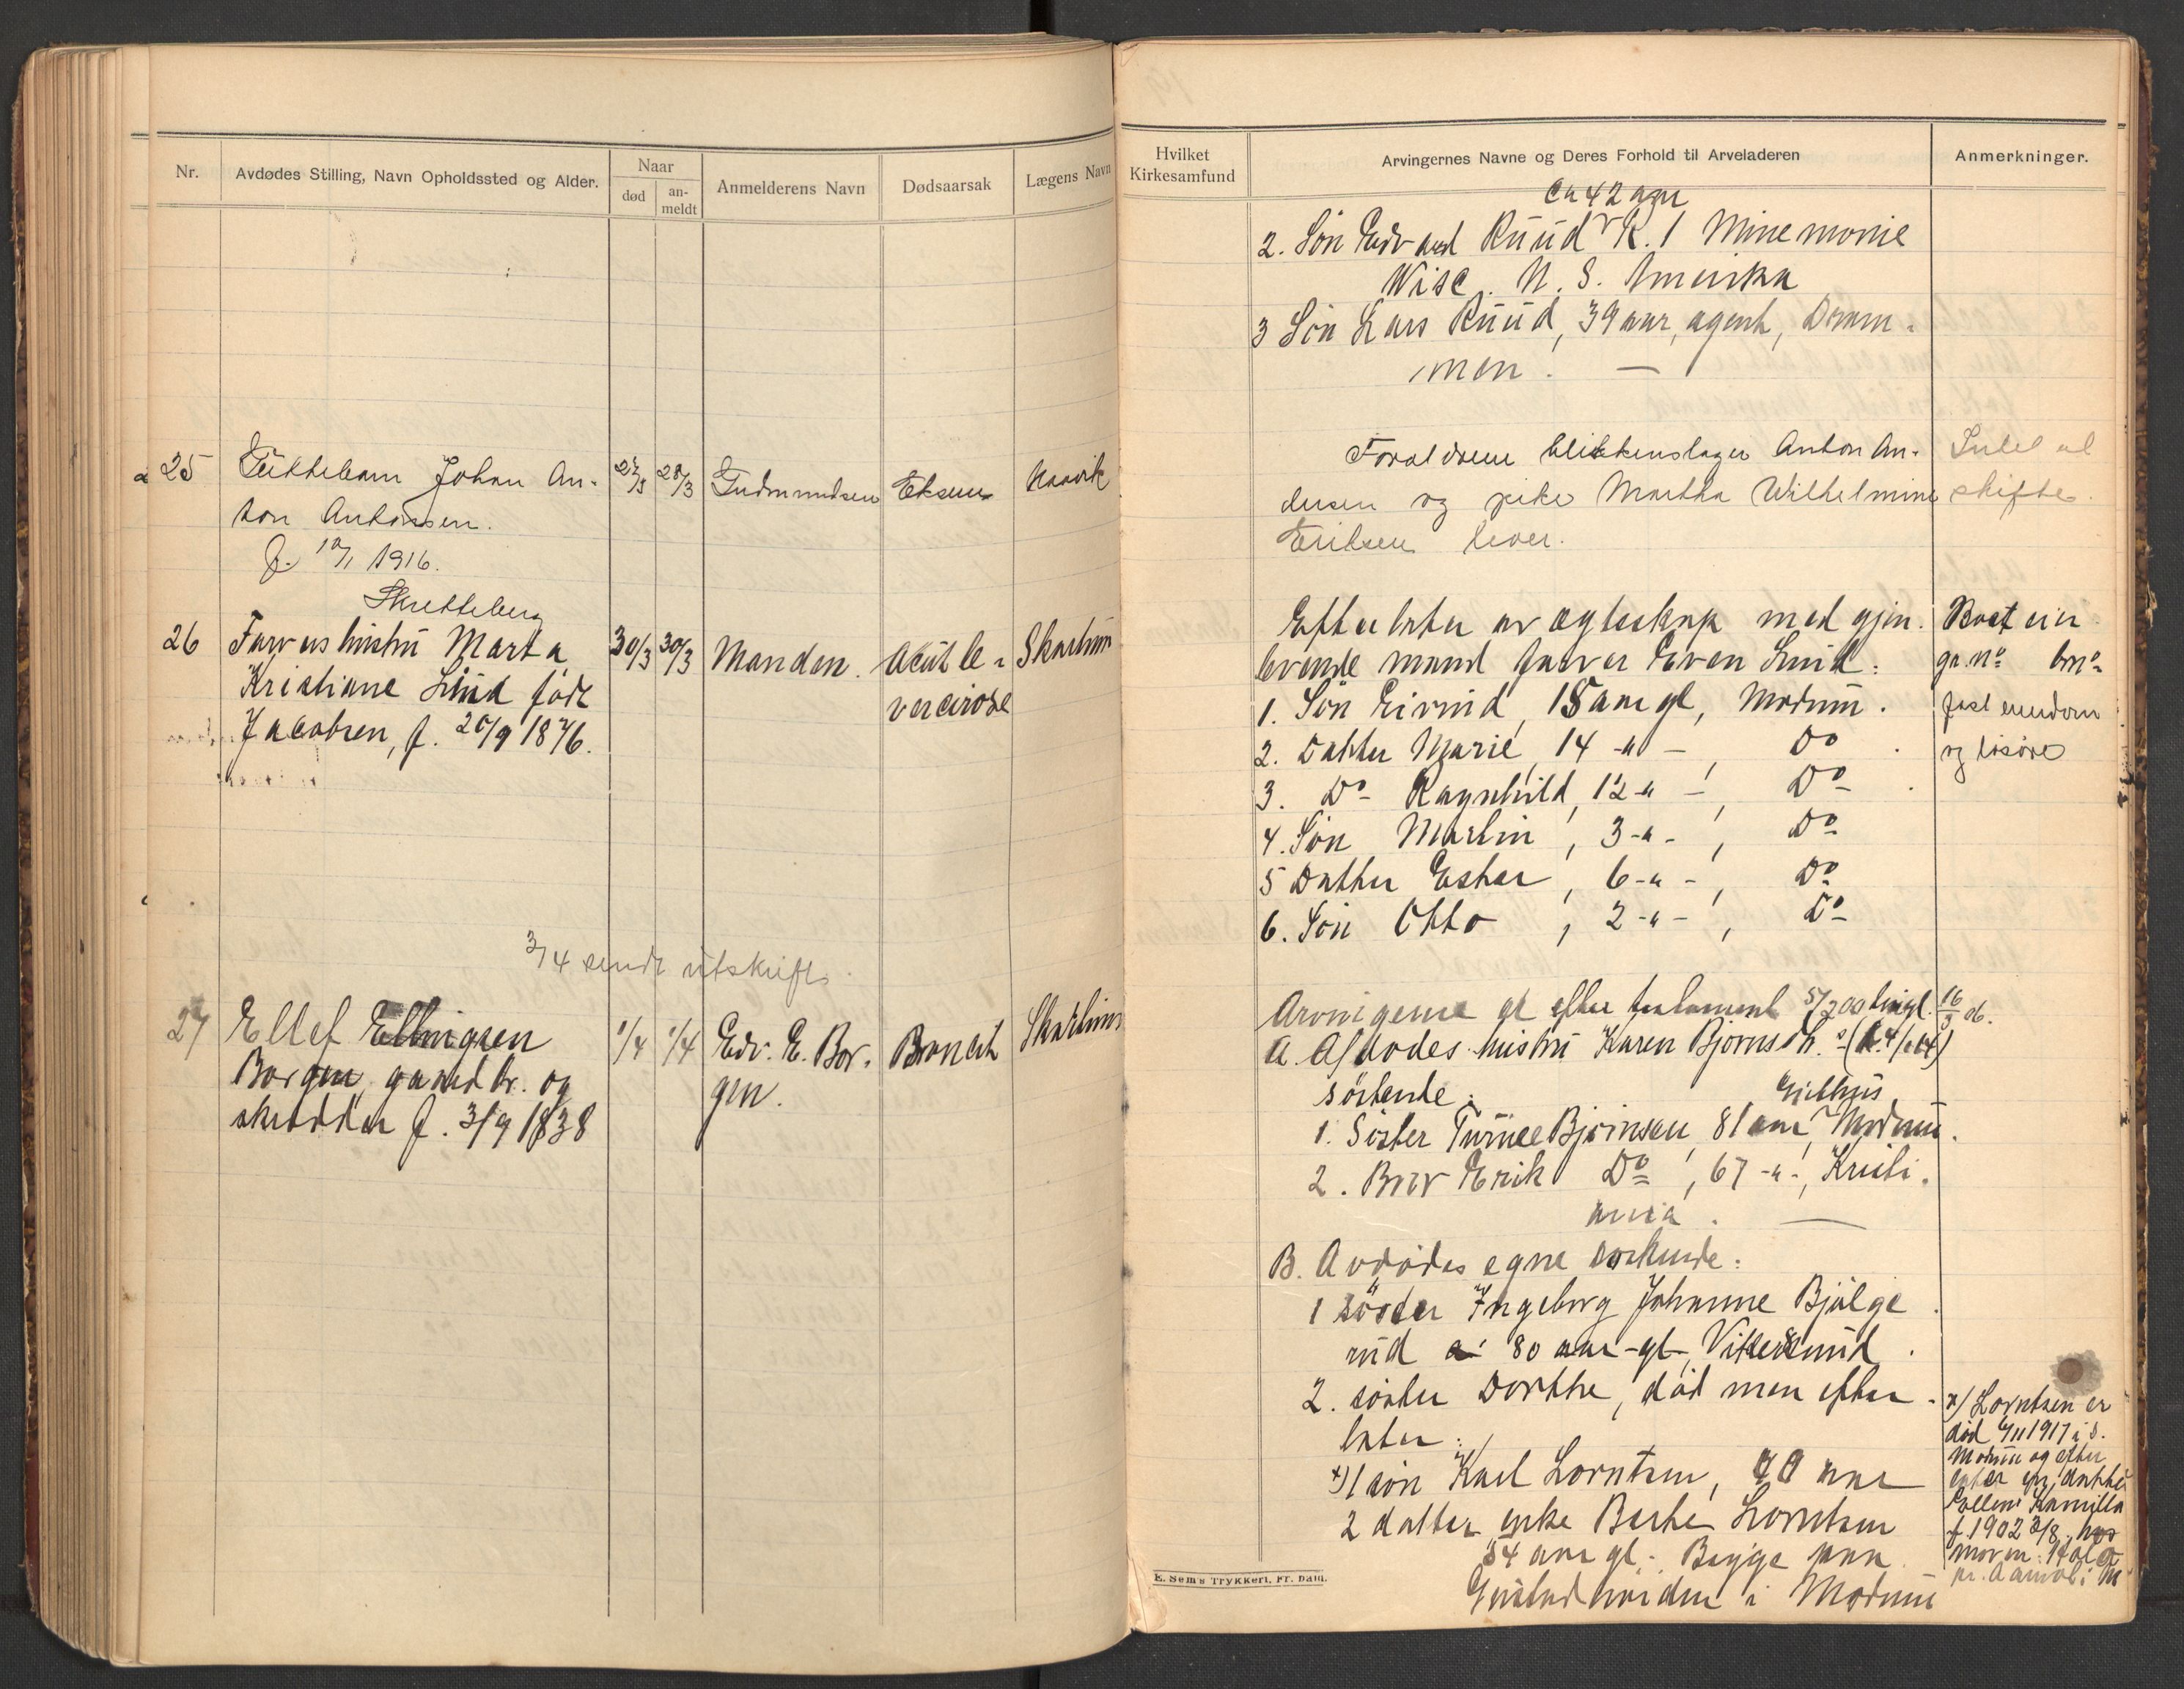 Nr.
Avdødes Stilling, Navn Opholdssted og Alder.
Naar
død
an-
meldt
Anmelderens Navn
Dødsaarsak
Lægens Navn
25
Johan An-
ton Antonsen.
f. 19/1 1916.
27/3
28/3
Gudmundsen
Eksem
Kaavik
Skretteberg
26
Farvers hustru Marta
Kristiane Lund född
Jacobsen, f. 20/9 1876.
30/3
30/3
Manden.
Acut le-
vercirose
Skarhim
3/4 sendt utskrift.
27
Ellef Ellingsen
Borgen, gaardbr. og
skrædder f. 3/9 1838
1/4
1/4
Edv. E. Bor-
gen.
Brancat
Skarhim
Hvilket
Kirkesamfund
Arvingernes Navne og Deres Forhold til Arveladeren
Anmerkninger.
ca 42 aar
2. Søn Edvard Ruud R. 1 Minemonie
Wisc. N. S. Amerika
3 Søn Lars Ruud, 39 aar, agent, Dram-
men. —
Forældrene blikkenslager Anton An-
dersen og pike Martha Wilhelmine
Eriksen lever.
Intet at
skifte.
Efterlater av ægteskap med gjen-
levende mand farver Even Lund:
1. Søn Eivind, 15 aar gl, Modum.
2. Datter Marie, 14 -"-, Do.
3. Do Ragnhild, 12 -"-, Do.
4. Søn Martin, 3 -"-, Do
5 Datter Esther, 6 -"-, Do
6. Søn Otto, 2 -"-, Do
Boet eier
gr. no brno
fast eiendom
og løsøre
Arvingerne er efter testament 5/2 00 tingl. 16/3 s.a.
A. Afdødes hustru Karen Bjørnsdt.s
søskende:
Geithus
1. Søster Turine Bjørnsen, 81 aar, Modum.
2. Bror Erik Do, 67 -"-, Kristi-
ania. —
B. Avdødes egne søskende:
1 søster Ingeborg Johanne Bjølge
rud 80 aar gl, Vikersund.
2. søster Dorthe, död men efter-
later:
x) 1 søn Karl Lorntsen, 40 aar
2 datter enke Berthe Lorntsen
54 aar gl. Begge paa
i Modum
x) Lorntsen er
död 4/11 1917 i S.
Modum og efter
later en datter
Ellen Kamilla
f. 1902 3/8, hos
moren
E. Sem's Trykkeri, Fr.hald.